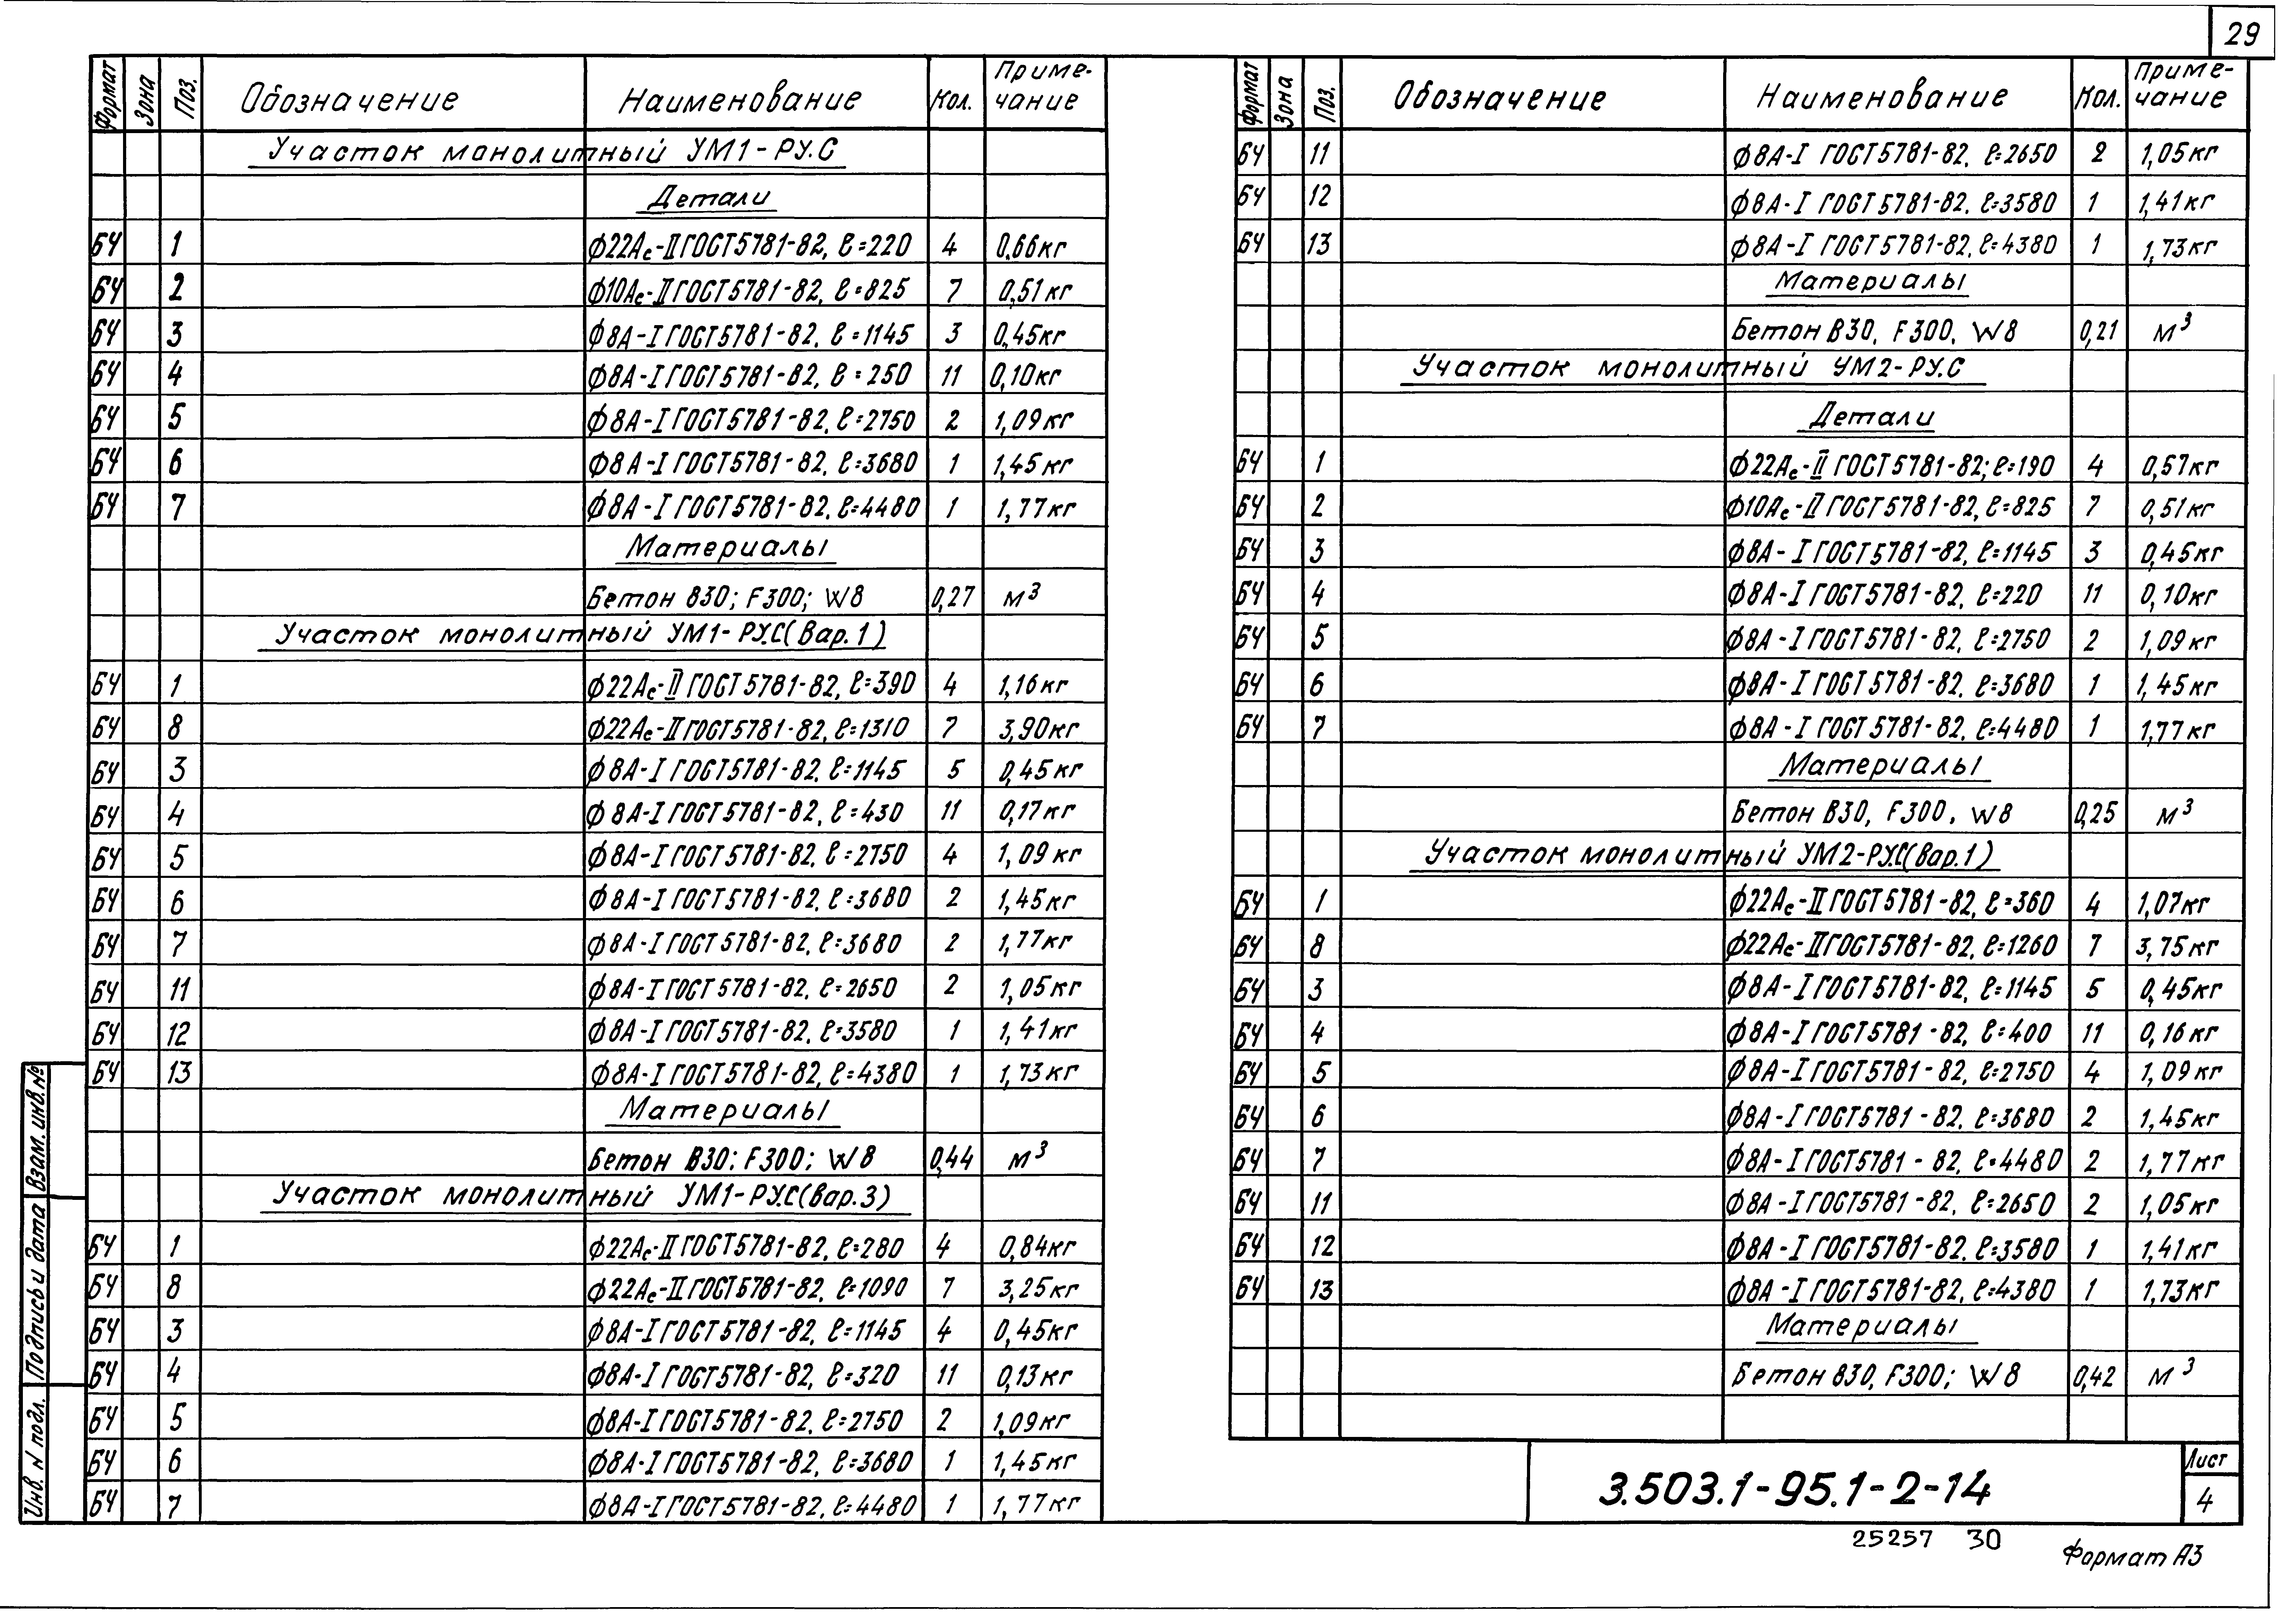 29
Формат Зона Поз. Обозначение Наименование Кол. Приме-чание
Участок монолитный УМ1-РУ.С
Детали
БЧ 1 ф22Ас-II ГОСТ5781-82, ℓ=220 4 0.66кг
БЧ 2 ф10Ас-II ГОСТ5781-82, ℓ=825 7 0,51кг
БЧ 3 ф8А-I ГОСТ5781-82, ℓ=1145 3 0,45кг
БЧ 4 ф8А-I ГОСТ5781-82, ℓ=250 11 0,10кг
БЧ 5 ф8А-I ГОСТ5781-82, ℓ=2750 2 1,09кг
БЧ 6 ф8А-I ГОСТ5781-82, ℓ=3680 1 1,45кг
БЧ 7 ф8А-I ГОСТ5781-82, ℓ=4480 1 1,77кг
Материалы
Бетон В30; F300; W8 0,27 м³
Участок монолитный УМ1-РУ.С(Вар.1)
БЧ 1 ф22Ас-II ГОСТ5781-82, ℓ=390 4 1,16кг
БЧ 8 ф22Ас-II ГОСТ5781-82, ℓ=1310 7 3,90кг
БЧ 3 ф8А-I ГОСТ5781-82, ℓ=1145 5 0,45кг
БЧ 4 ф8А-I ГОСТ5781-82, ℓ=430 11 0,17кг
БЧ 5 ф8А-I ГОСТ5781-82, ℓ=2750 4 1,09кг
БЧ 6 ф8А-I ГОСТ5781-82, ℓ=3680 2 1,45кг
БЧ 7 ф8А-I ГОСТ5781-82, ℓ=3680 2 1,77кг
БЧ 11 ф8А-I ГОСТ5781-82, ℓ=2650 2 1,05кг
БЧ 12 ф8А-I ГОСТ5781-82, ℓ=3580 1 1,41кг
БЧ 13 ф8А-I ГОСТ5781-82, ℓ=4380 1 1,73кг
Материалы
Бетон В30; F300; W8 0,44 м³
Участок монолитный УМ1-РУ.С(Вар.3)
БЧ 1 ф22Ас-II ГОСТ5781-82, ℓ=280 4 0,84кг
БЧ 8 ф22Ас-II ГОСТ5781-82, ℓ=1090 7 3,25кг
БЧ 3 ф8А-I ГОСТ5781-82, ℓ=1145 4 0,45кг
БЧ 4 ф8А-I ГОСТ5781-82, ℓ=320 11 0,13кг
БЧ 5 ф8А-I ГОСТ5781-82, ℓ=2750 2 1,09кг
БЧ 6 ф8А-I ГОСТ5781-82, ℓ=3680 1 1,45кг
БЧ 7 ф8А-I ГОСТ5781-82, ℓ=4480 1 1,77кг
Формат Зона Поз. Обозначение Наименование Кол. Приме-чание
БЧ 11 ф8А-I ГОСТ5781-82, ℓ=2650 2 1,05кг
БЧ 12 ф8А-I ГОСТ5781-82, ℓ=3580 1 1,41кг
БЧ 13 ф8А-I ГОСТ5781-82, ℓ=4380 1 1,73кг
Материалы
Бетон В30, F300, W8 0,21 м³
Участок монолитный УМ2-РУ.С
Детали
БЧ 1 ф22Ас-II ГОСТ5781-82; ℓ=190 4 0,57кг
БЧ 2 ф10Ас-II ГОСТ5781-82, ℓ=825 7 0,51кг
БЧ 3 ф8А-I ГОСТ5781-82, ℓ=1145 3 0,45кг
БЧ 4 ф8А-I ГОСТ5781-82, ℓ=220 11 0,10кг
БЧ 5 ф8А-I ГОСТ5781-82, ℓ=2750 2 1,09кг
БЧ 6 ф8А-I ГОСТ5781-82, ℓ=3680 1 1,45кг
БЧ 7 ф8А-I ГОСТ5781-82, ℓ=4480 1 1,77кг
Материалы
Бетон В30, F300, W8 0,25 м³
Участок монолитный УМ2-РУ.С(Вар.1)
БЧ 1 ф22Ас-II ГОСТ5781-82, ℓ=360 4 1,07кг
БЧ 8 ф22Ас-II ГОСТ5781-82, ℓ=1260 7 3,75кг
БЧ 3 ф8А-I ГОСТ5781-82, ℓ=1145 5 0,45кг
БЧ 4 ф8А-I ГОСТ5781-82, ℓ=400 11 0,16кг
БЧ 5 ф8А-I ГОСТ5781-82, ℓ=2750 4 1,09кг
БЧ 6 ф8А-I ГОСТ5781-82, ℓ=3680 2 1,45кг
БЧ 7 ф8А-I ГОСТ5781-82, ℓ=4480 2 1,77кг
БЧ 11 ф8А-I ГОСТ5781-82, ℓ=2650 2 1,05кг
БЧ 12 ф8А-I ГОСТ5781-82, ℓ=3580 1 1,41кг
БЧ 13 ф8А-I ГОСТ5781-82, ℓ=4380 1 1,73кг
Материалы
Бетон В30, F300; W8 0,42 м³
Инв. N подл. Подпись и дата Взам. инв.№
3.503.1-95.1-2-14
Лист
4
25257 30
Формат А3